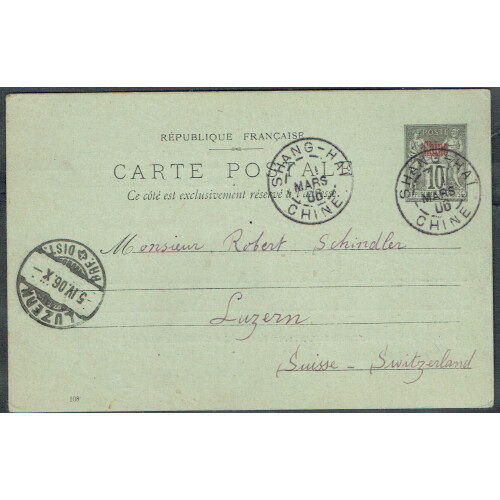 RÉPUBLIQUE FRANÇAISE
CARTE POSTALE
Ce côté est exclusivement réservé à l'adresse.
POSTE
Chine
10
SHANG-HAÏ
1
MARS
06
CHINE
SHANG-HAÏ
MARS
06
CHINE
Monsieur Robert Schindler
Luzern
Suisse - Switzerland
BRF. DIST.
5 IV 06. X
LUZERN
109